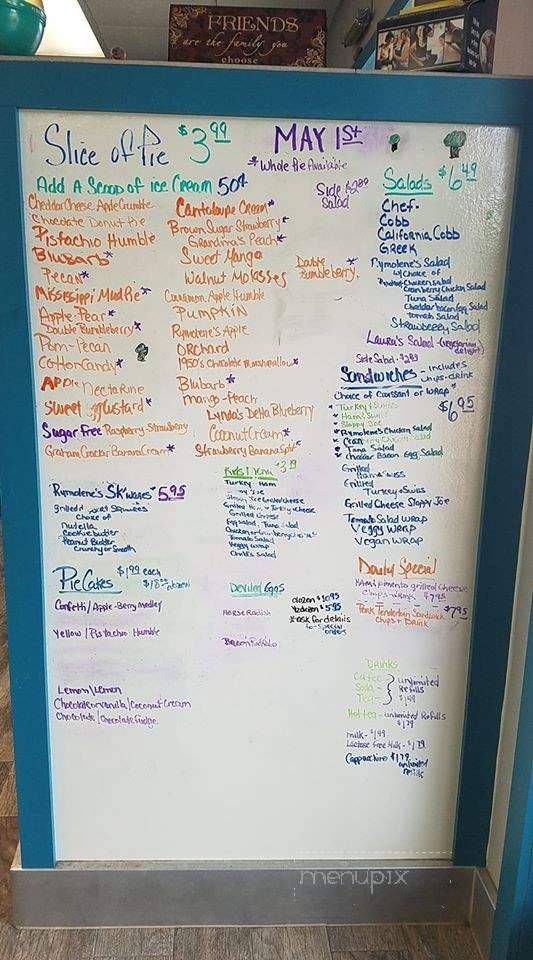 FRIENDS
are the family you
choose
Slice of Pie $3.99
MAY 1st
*Whole Pie Available
Add A Scoop of ice Cream 50¢
Side $2.89
Salad
Cheddar Cheese Apple Crumble
Chocolate Donut Pie
Pistachio Humble
Blubarb*
Pecan*
Mississippi Mud Pie*
Apple-Pear*
Double Bumbleberry*
Pom-Pecan
Cotton Candy*
Apple Nectarine
Sweet Egg Custard*
Sugar Free Raspberry-Strawberry
Graham Cracker Banana Cream*
Cantaloupe Cream*
Brown Sugar Strawberry*
Grandma's Peach*
Sweet Mango
Walnut Molasses
Cinnamon Apple Humble
Pumpkin
Rymolene's Apple
Orchard
1950's Chocolate Marshmallow*
Blubarb*
Mango-Peach
Lynda's Delta Blueberry
Coconut Cream*
Strawberry Banana Split*
Double
Bumbleberry.
Salads $6.49
Chef-
Cobb
California Cobb
Greek
Rymolene's Salad
w/choice of
Chicken Salad
Cranberry Chicken Salad
Tuna Salad
Cheddar bacon Egg Salad
Tomato Salad
Strawberry Salad
Laura's Salad (vegetarian
delight)
Side Salad - $2.89
Sandwiches - includes
chips-drink
Choice of Croissant or WRAP*
$6.95
* Turkey & Swiss
* Ham & Swiss
* Sloppy Joe
* Rymolene's Chicken Salad
* Cranberry Chicken Salad
* Tuna Salad
* Cheddar Bacon Egg Salad
Grilled
Ham & Swiss
Grilled
Turkey & Swiss
Grilled Cheese Sloppy Joe
Tomato Salad Wrap
Veggy Wrap
Vegan Wrap
Rymolene's $5.95
Choice of
Nutella
Cookie butter
Peanut Butter
Crunchy or Smooth
Kids Menu
Turkey Ham
Grilled Cheese
Egg salad, Tuna Salad
Tomato Salad
Veggy Wrap
Child's Salad
Pie Cakes $1.99 each
dozen
Confetti/Apple-Berry Medley
Yellow/Pistachio Humble
Lemon/Lemon
Chocolate or vanilla/Coconut Cream
Chocolate/Chocolate Fudge
Deviled Eggs
dozen $10.95
1/2 dozen $5.95
*ask for details
for special
orders
Horse Radish
Daily Special
Ham & Pimento grilled Cheese
Chips-drink $7.95
Pork Tenderloin Sandwich $7.95
Chips & Drink
Drinks
Coffee
Soda
Tea
unlimited
Refills
$1.49
Hot tea - unlimited Refills
$1.79
Milk - $1.49
Lactose Free Milk - $1.79
Cappuccino $1.79
unlimited
refills
menupix